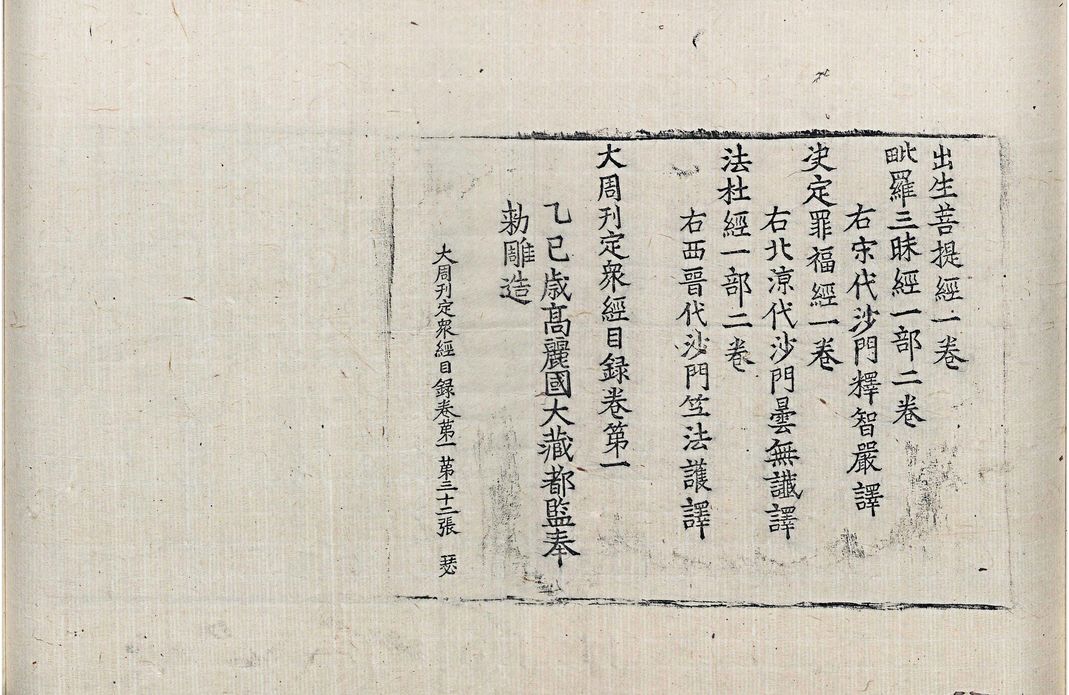 出生菩提經一卷
毗羅三昧經一部二卷
右宋代沙門釋智嚴譯
決定罪福經一卷
右北涼代沙門曇無讖譯
法社經一部二卷
右西晉代沙門竺法護譯
大周刊定衆經目録卷第一
乙巳歳高麗國大藏都監奉
勅雕造
大周刊定衆經目録卷第一 第三十二張 瑟